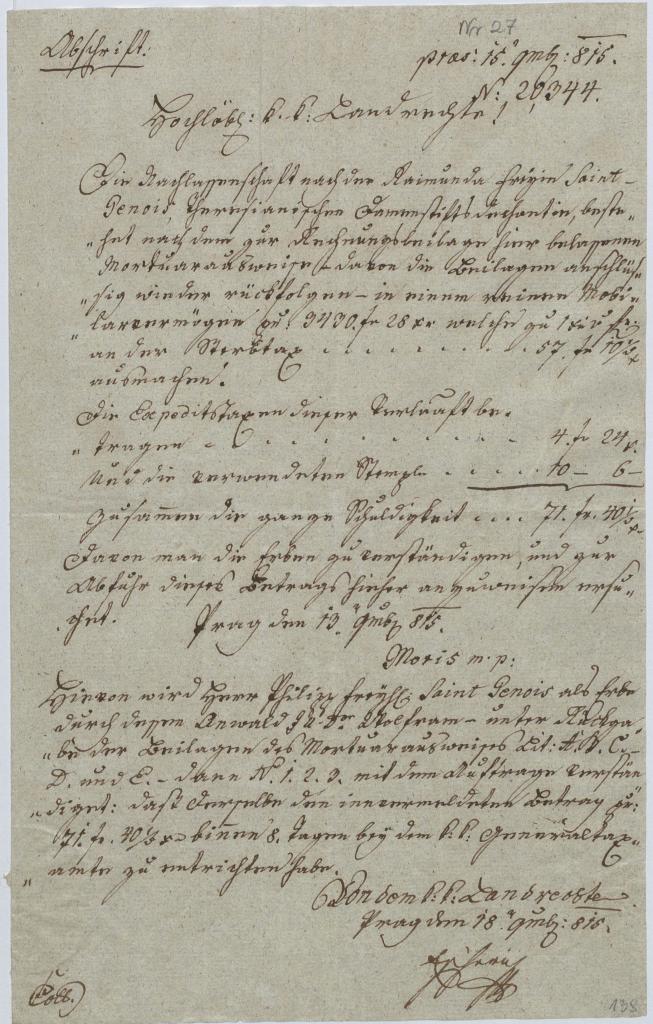 Nr 27
Abschrift.
praes: 15. 9mb: 815.
N: 20,344.
Hochlöbl: k. k: Landrechte!
Die Nachlassenschaft nach der Raimunda Freyin Saint-
Genois, Theresianischen Damenstifts dechantin, beste-
"het nach dem zur Rechnungsbeilage hier belassenen
Mortuarausweise – davon die Beilagen anschlüs-
"sig wieder rückfolgen – in einem reinen Mobi-
"larvermögen pr: 3430. fr 28 xr welche zu 1 xr
an der Sterbtax . . . . . . . . 57. fr 10 1/2 x
ausmachen.
Die Expeditstaxen dieser Verlauft be-
"tragen . . . . . . . . 4. fr 24 x.
Und die verwendeten Stempl . . . . . 10 – 6 –
Zusammen die ganze Schuldigkeit . . . . 71. fr. 40 1/2 x
Davon man die Erben zu verständigen, und zur
Abfuhr dieses Betrags hieher anzuweisen ersu-
"chet. Prag den 13. 9mb 815.
Moris m. p:
Hievon wird Herr Philipp Freyh: Saint Genois als Erbe
durch dessen Anwald J. U. Dr Wolfram – unter Rückga-
"be der Beilagen des Mortuarausweises Lit: A. B. C.
D. und E. – dann N. 1. 2. 3. mit dem Auftrage verstän
"diget: daß derselbe den innvermeldeten Betrag pr:
71. fr. 40 1/2 x binnen 8. Tagen bey dem k. k: Generaltax-
"amte zu entrichten habe.
Von dem k: k: Landrechte
Prag den 18. 9mb: 815.
Coll.
138